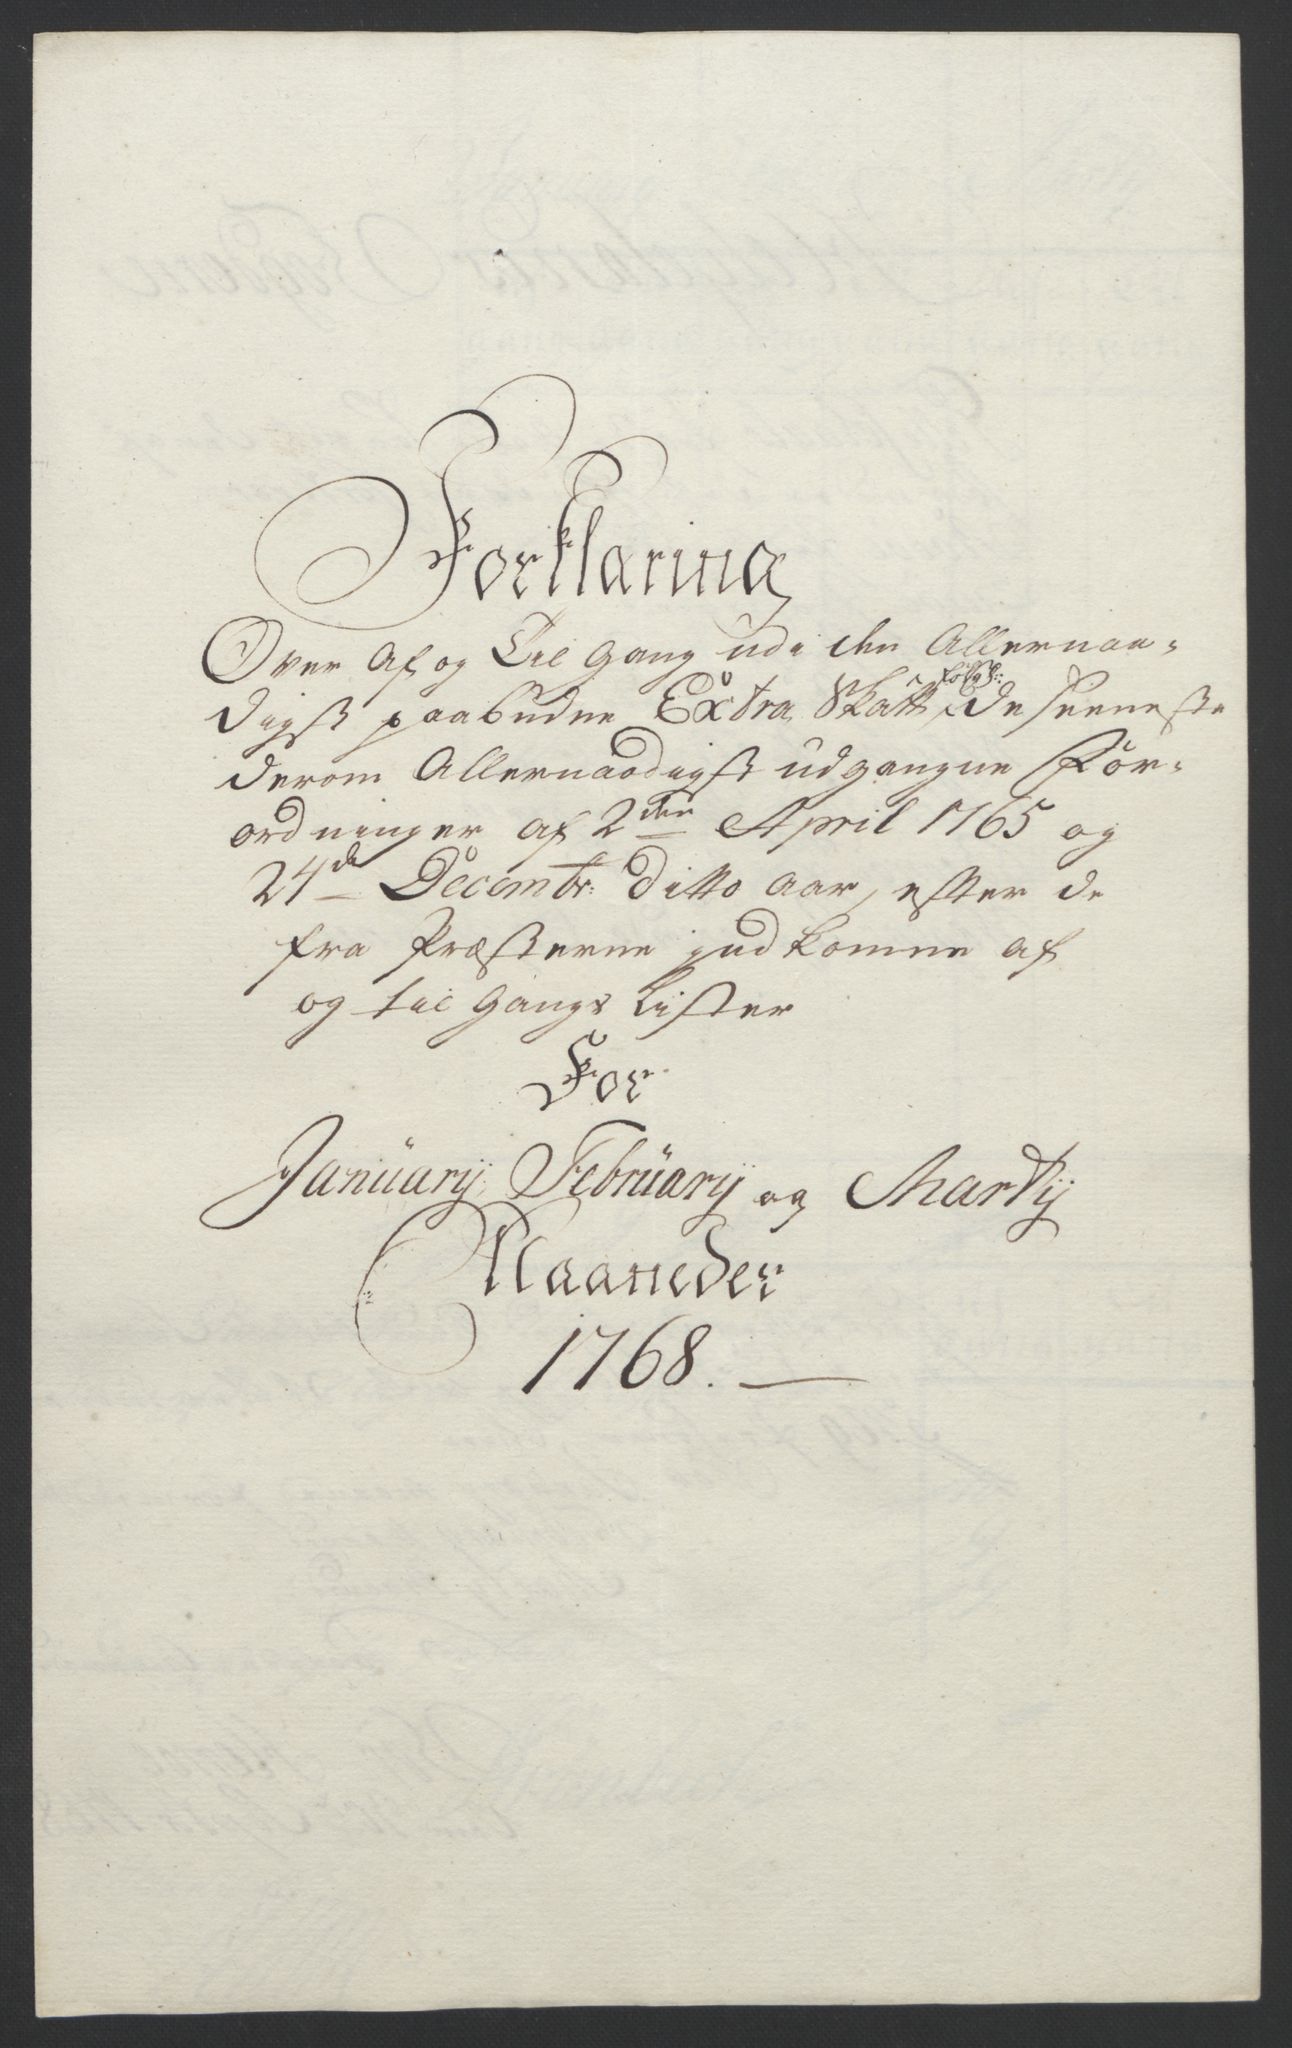 Forklaring
Over Af og Til Gang udi den Allernaa-
digst paabudne Extra Skatt, følg: de seeneste
derom Allernaadigst udgangne For-
ordninger af 2den April 1765 og
24de Decembr: ditto Aar, efter de
fra Præsterne indkomne af
og til Gangs Lister
For
Januarij, Februarij og Martij
Maaneder
1768.